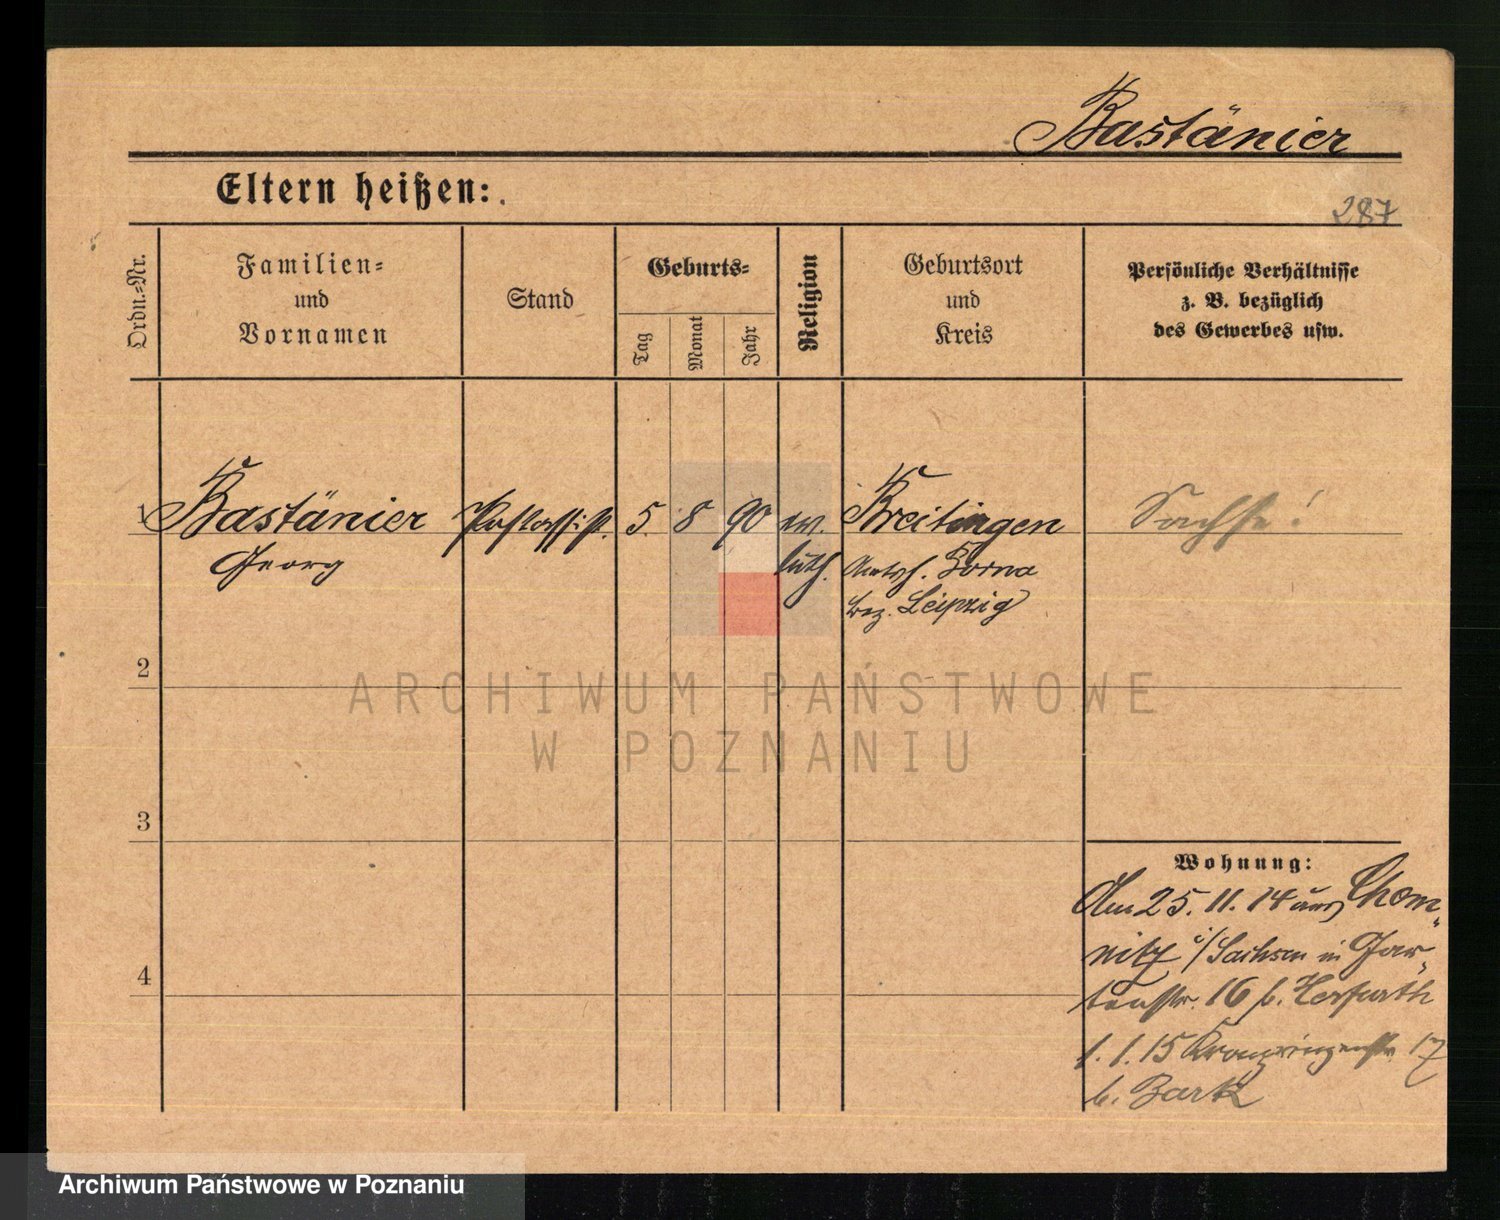 Bastänier
Eltern heißen:
287
Ordn.-Nr.
Familien=
und
Vornamen
Stand
Geburts=
Tag
Monat
Jahr
Religion
Geburtsort
und
Kreis
Persönliche Verhältnisse
z. B. bezüglich
des Gewerbes usw.
1 Bastänier Postassist. 5. 8 90 ev. Breitingen Sachse!
Georg luth. Amtsh. Borna
bez. Leipzig
2
3
4
Wohnung:
Am 25. 11. 14 aus Chem-
nitz i/Sachsen in Gar-
tenstr. 16 b. Herfurth
1. 1. 15 Kronprinzenstr. 17
b. Bark
ARCHIWUM PAŃSTWOWE
W POZNANIU
Archiwum Państwowe w Poznaniu